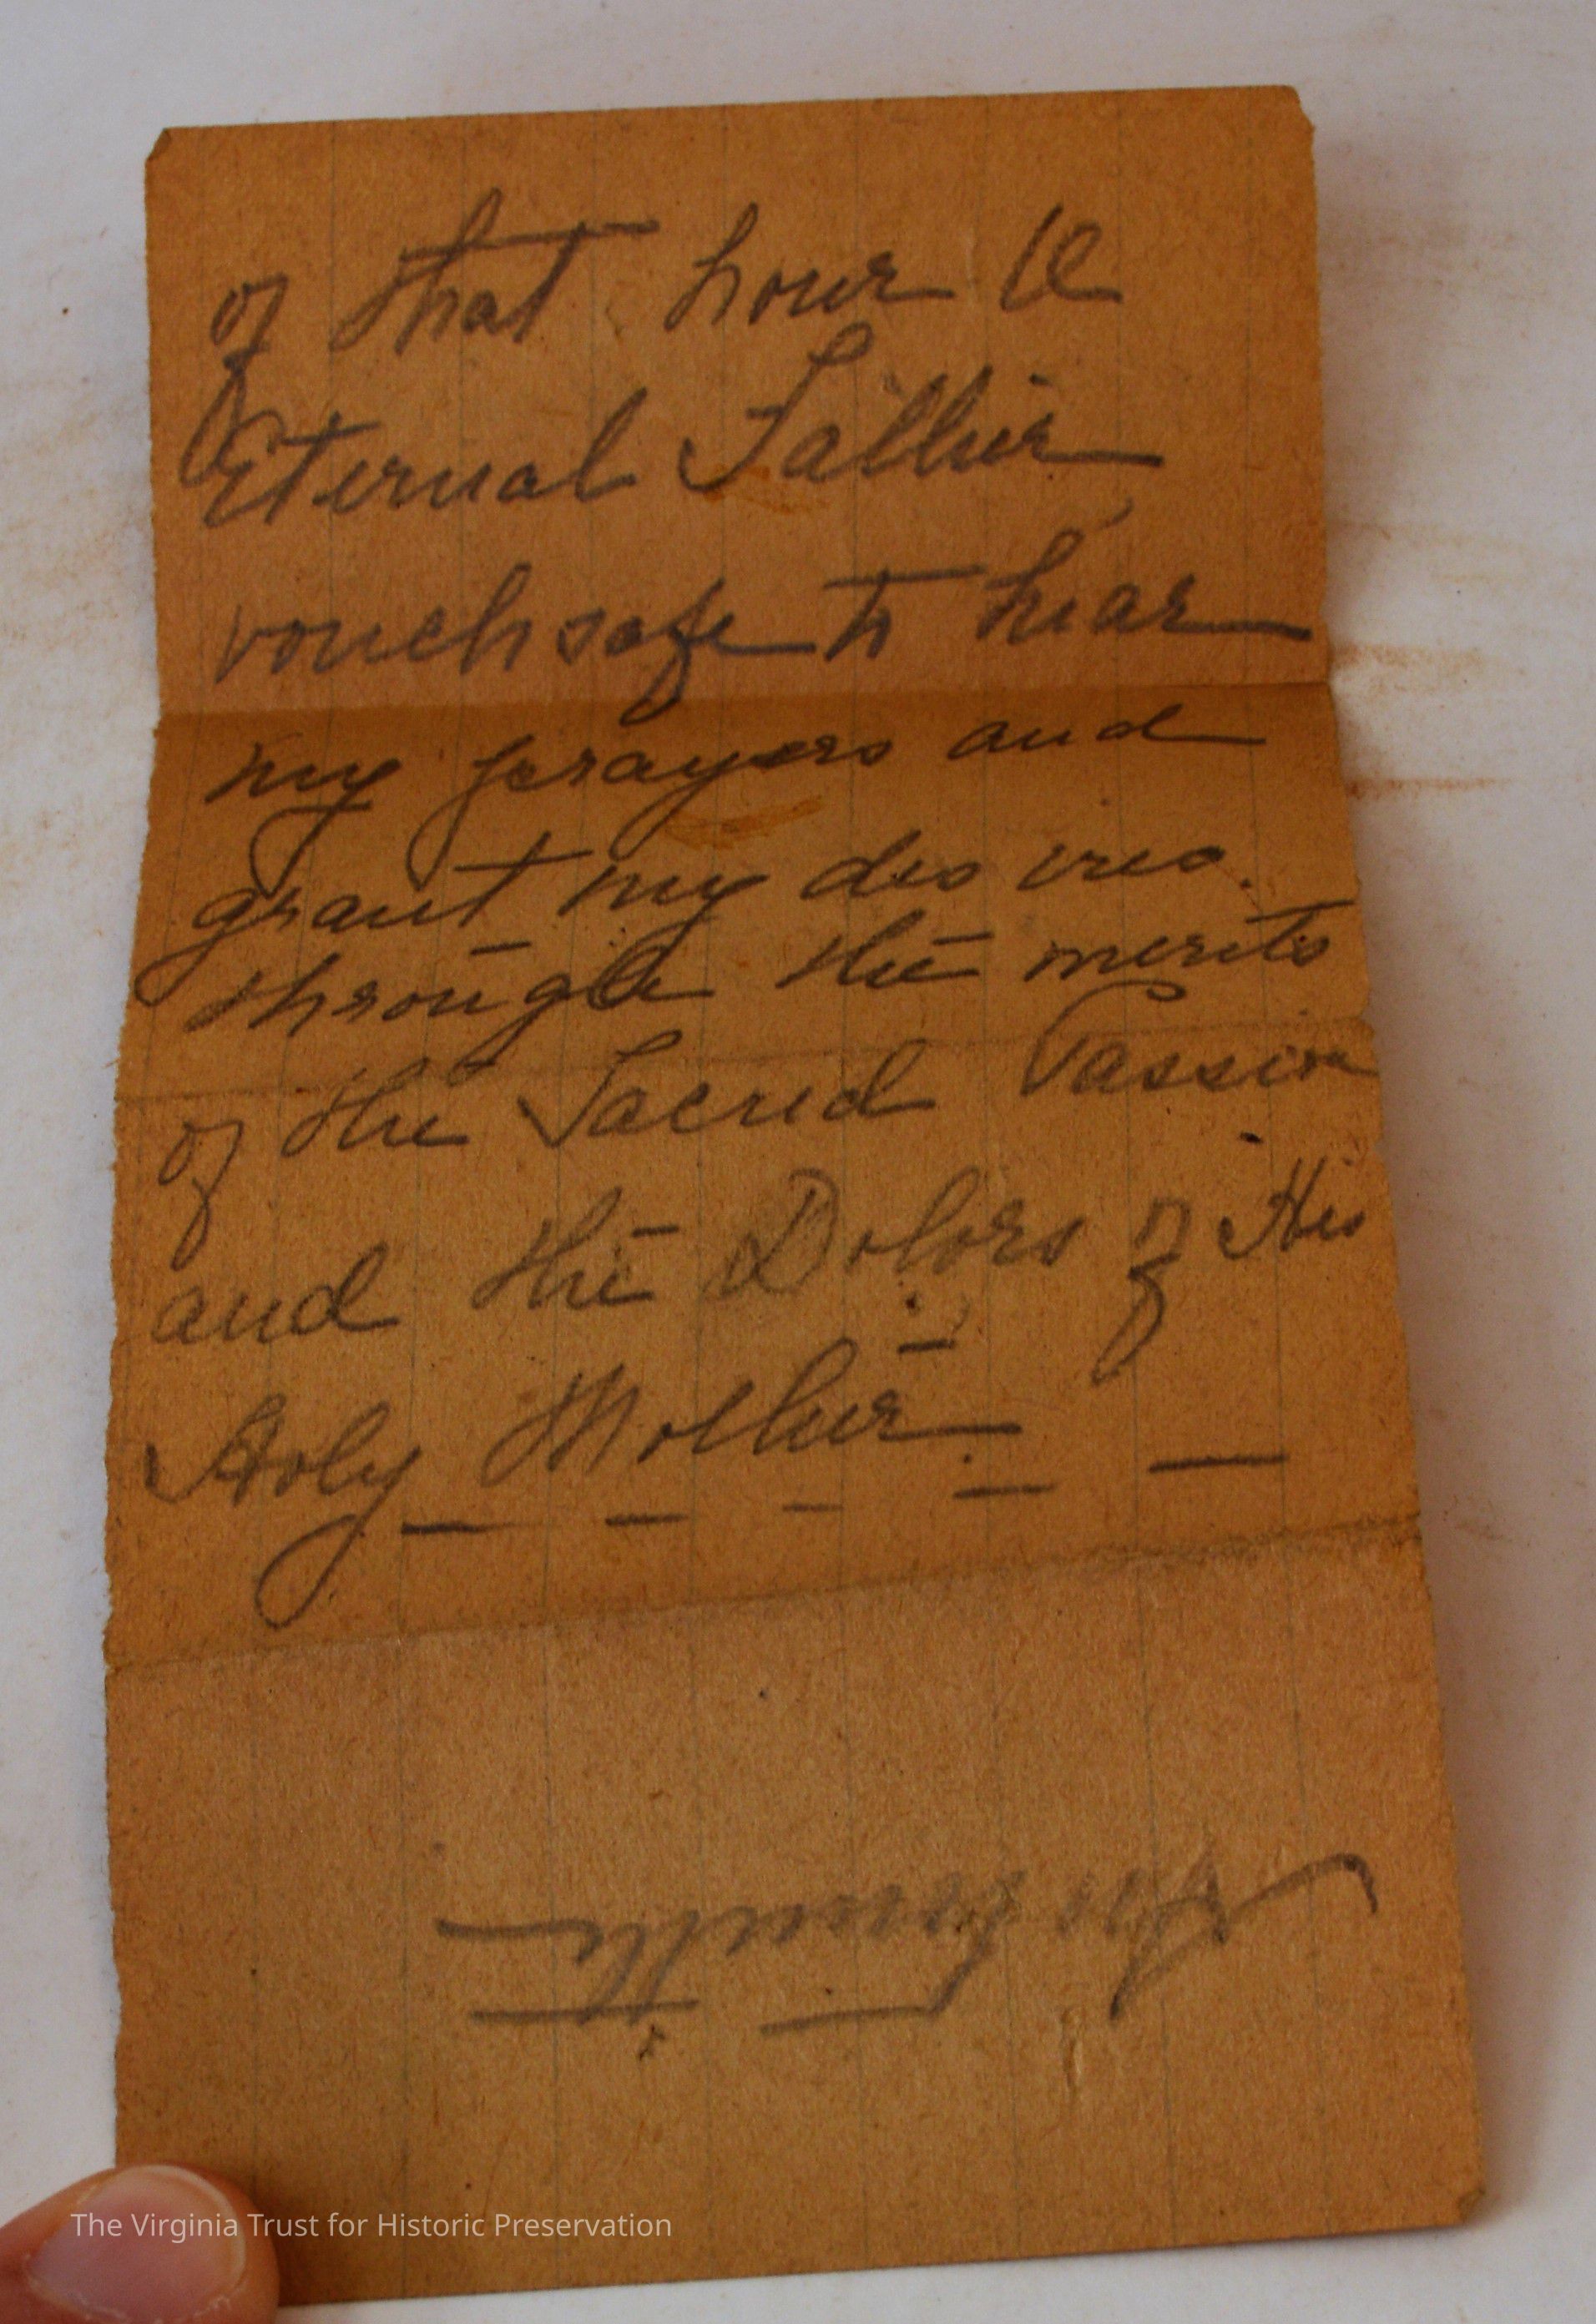 of that hour O
Eternal Father
vouchsafe to hear
my prayers and
grant my desires.
through the merits
of the Sacred Passion
and the Dolors of His
Holy Mother
The Virginia Trust for Historic Preservation